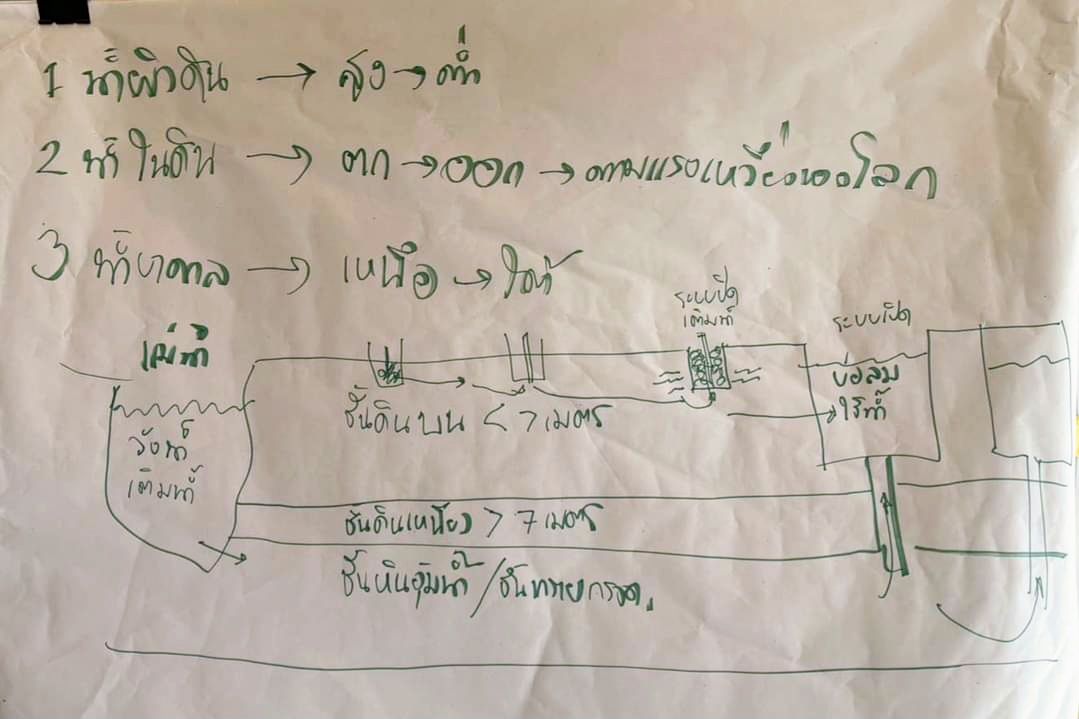 1 น้ำผิวดิน → สูง → ต่ำ
2 น้ำในดิน → ตก → ออก → ตามแรงเหวี่ยงของโลก
3 น้ำบาดาล → เหนือ → ใต้
ระบบปิด
เติมน้ำ
ระบบเปิด
แม่น้ำ
บ่อลม
ใช้น้ำ
ชั้นดินบน < 7 เมตร
วังน้ำ
เติมน้ำ
ชั้นดินเหนียว > 7 เมตร
ชั้นหินอุ้มน้ำ / ชั้นทรายกรวด